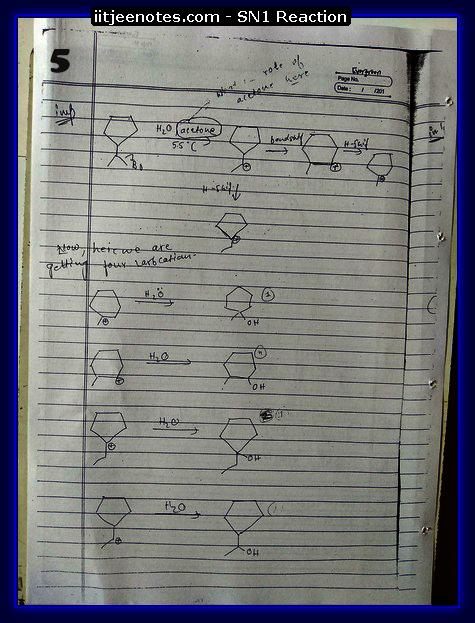 iitjeenotes.com - SN1 Reaction
5
Evergreen
Page No.
Date : / /201
What is role of
acetone here
imp
H2O acetone
55°C
Br
bondshift
H-shift
H-shift
Now, here we are
getting four carbocation.
H2O
1
OH
H2O
OH
H2O
OH
H2O
OH